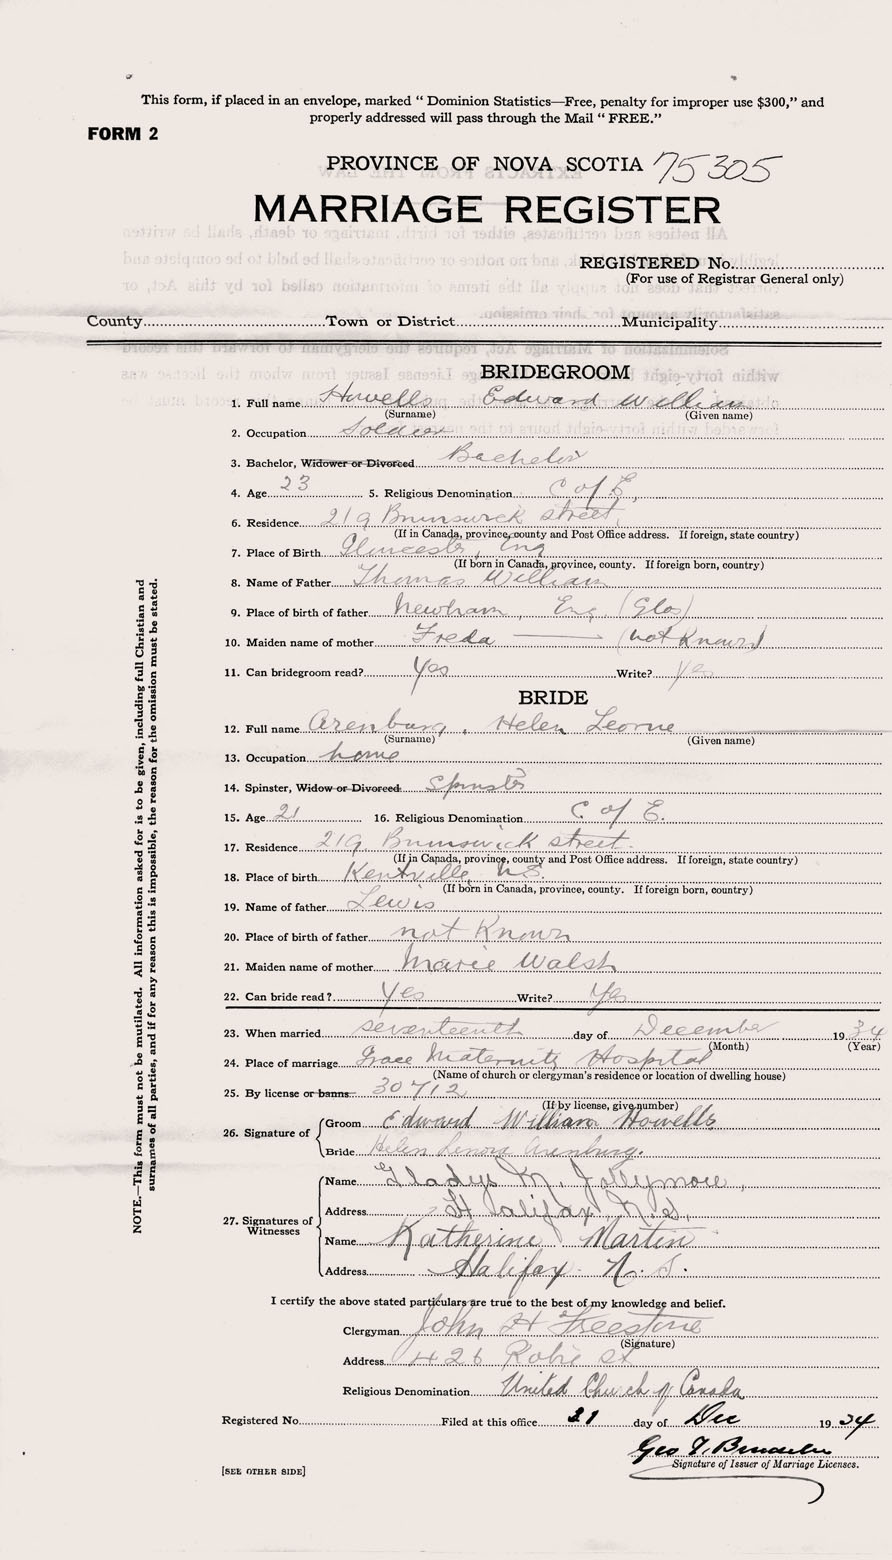 This form, if placed in an envelope, marked “ Dominion Statistics—Free, penalty for improper use $300,” and
properly addressed will pass through the Mail “ FREE.”
FORM 2
PROVINCE OF NOVA SCOTIA 75305
MARRIAGE REGISTER
REGISTERED No.
(For use of Registrar General only)
County Town or District Municipality
BRIDEGROOM
1. Full name Howells Edward William
(Surname) (Given name)
2. Occupation Soldier
3. Bachelor, Widower or Divorced Bachelor
4. Age 23 5. Religious Denomination C of E,
6. Residence 219 Brunswick street,
(If in Canada, province, county and Post Office address. If foreign, state country)
7. Place of Birth Gloucester, Eng
(If born in Canada, province, county. If foreign born, country)
8. Name of Father Thomas William
9. Place of birth of father Newham, Eng (Glos)
10. Maiden name of mother Freda (not Known)
11. Can bridegroom read? Yes Write? Yes
BRIDE
12. Full name Arenburg, Helen Leorne
(Surname) (Given name)
13. Occupation home
14. Spinster, Widow or Divorced Spinster
15. Age 21 16. Religious Denomination C of E.
17. Residence 219 Brunswick street.
(If in Canada, province, county and Post Office address. If foreign, state country)
18. Place of birth Kentville, N.S.
(If born in Canada, province, county. If foreign born, country)
19. Name of father Lewis
20. Place of birth of father not Known
21. Maiden name of mother Marie Walsh
22. Can bride read? Yes Write? Yes
23. When married seventeenth day of December 1934
(Month) (Year)
24. Place of marriage Grace Maternity Hospital
(Name of church or clergyman's residence or location of dwelling house)
25. By license or banns 30712
(If by license, give number)
26. Signature of Groom Edward William Howells
Bride Helen Lenora Arenburg.
27. Signatures of Witnesses
Name Gladys M. Jollymore,
Address Halifax N.S.
Name Katherine Martin
Address Halifax N. S.
I certify the above stated particulars are true to the best of my knowledge and belief.
Clergyman John H Freestone
(Signature)
Address 426 Robie St
Religious Denomination United Church of Canada
Registered No. Filed at this office 21 day of Dec 1934
Geo F.
Signature of Issuer of Marriage Licenses.
[SEE OTHER SIDE]
NOTE.—This form must not be mutilated. All information asked for is to be given, including full Christian and
surnames of all parties, and if for any reason this is impossible, the reason for the omission must be stated.